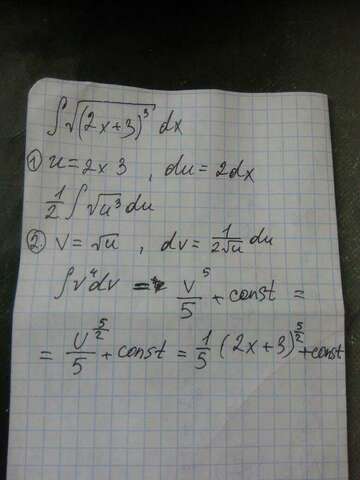 ∫√(2x+3)³ dx
① u = 2x 3 , du = 2dx
1/2 ∫ √u³ du
② v = √u , dv = 1/(2√u) du
∫ v⁴ dv = v⁵/5 + const =
= u^(5/2)/5 + const = 1/5 (2x+3)^(5/2) + const